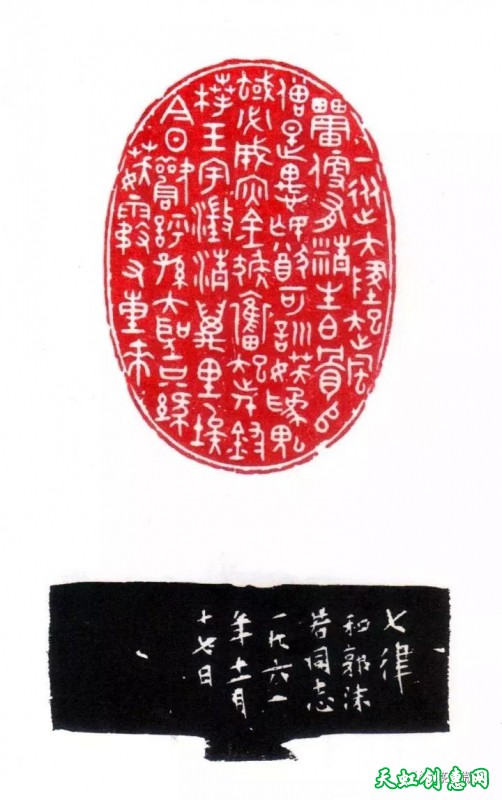 一從大地起風
雷便有精生白骨堆
僧是愚氓猶可訓妖為鬼
蜮必成災金猴奮起千鈞
棒玉宇澄清萬里埃
今日歡呼孫大聖只緣
妖霧又重來
七律
和郭沫
若同志
一九六一
年十一月
十七日
天虹创意网